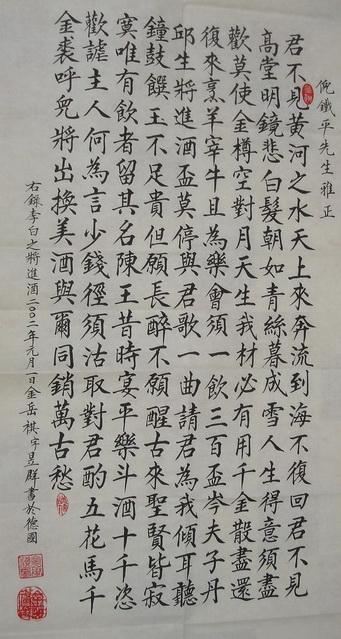 倪鐵平先生雅正
君不見黃河之水天上來奔流到海不復回君不見
高堂明鏡悲白髮朝如青絲暮成雪人生得意須盡
歡莫使金樽空對月天生我材必有用千金散盡還
復來烹羊宰牛且為樂會須一飲三百盃岑夫子丹
邱生將進酒盃莫停與君歌一曲請君為我傾耳聽
鐘鼓饌玉不足貴但願長醉不願醒古來聖賢皆寂
寞唯有飲者留其名陳王昔時宴平樂斗酒十千恣
歡謔主人何為言少錢徑須沽取對君酌五花馬千
金裘呼兒將出換美酒與爾同銷萬古愁
右錄李白之將進酒二〇〇二年元月一日金岳祺字昱群書於德國